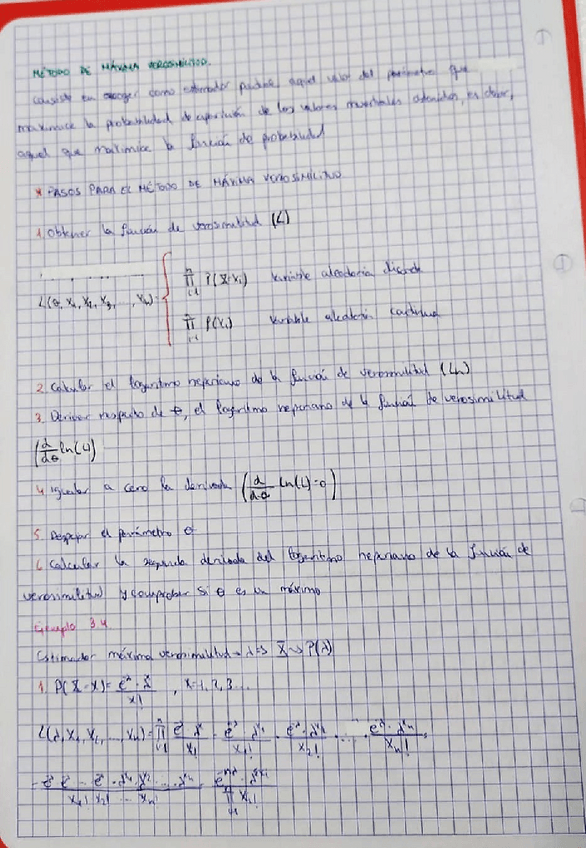 MÉTODO DE MÁXIMA VEROSIMILITUD.
consiste en escoger como estimador puntual aquel valor del parámetro que
maximice la probabilidad de aparición de los valores muestrales obtenidos, es decir,
aquel que maximice la función de probabilidad
* PASOS PARA EL MÉTODO DE MÁXIMA VEROSIMILITUD
1. Obtener la función de verosimilitud (L)
L(θ, x₁, x₂, x₃, ..., xₙ) = { ∏ᵢ₌₁ⁿ P(X=xᵢ) variable aleatoria discreta
∏ᵢ₌₁ⁿ f(xᵢ) variable aleatoria continua
2. Calcular el logaritmo neperiano de la función de verosimilitud (Ln)
3. Derivar respecto de θ, el logaritmo neperiano de la función de verosimilitud
(d/dθ ln(L))
4. Igualar a cero la derivada (d/dθ ln(L)=0)
5. Despejar el parámetro θ
6. Calcular la segunda derivada del logaritmo neperiano de la función de
verosimilitud y comprobar si θ es un máximo
Ejemplo 3.4
Estimador máxima verosimilitud λ => X ~> P(λ)
1. P(X=x) = e^-λ · λ^x / x! , x=1, 2, 3...
L(λ, x₁, x₂, ..., xₙ) = ∏ᵢ₌₁ⁿ e^-λ λ^xᵢ / xᵢ! = e^-λ · λ^x₁ / x₁! · e^-λ · λ^x₂ / x₂! ..... e^-λ · λ^xₙ / xₙ! =
= e^-λ e^-λ ... e^-λ · λ^x₁ λ^x₂ ... λ^xₙ / x₁! x₂! ... xₙ! = e^-nλ · λ^Σxᵢ / ∏ᵢ₌₁ⁿ xᵢ!